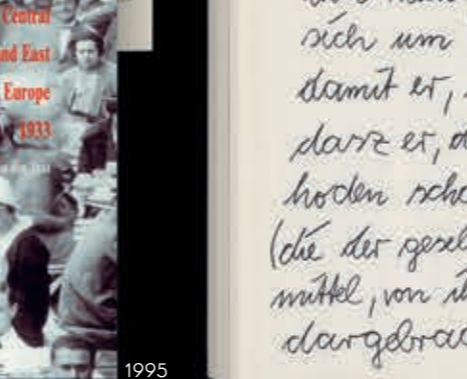 Central
nd East
Europe
1933
1995
sich um
damit er,
dasz er, d
hoden sche
(die der gesel
mittel, von i
dargebrac